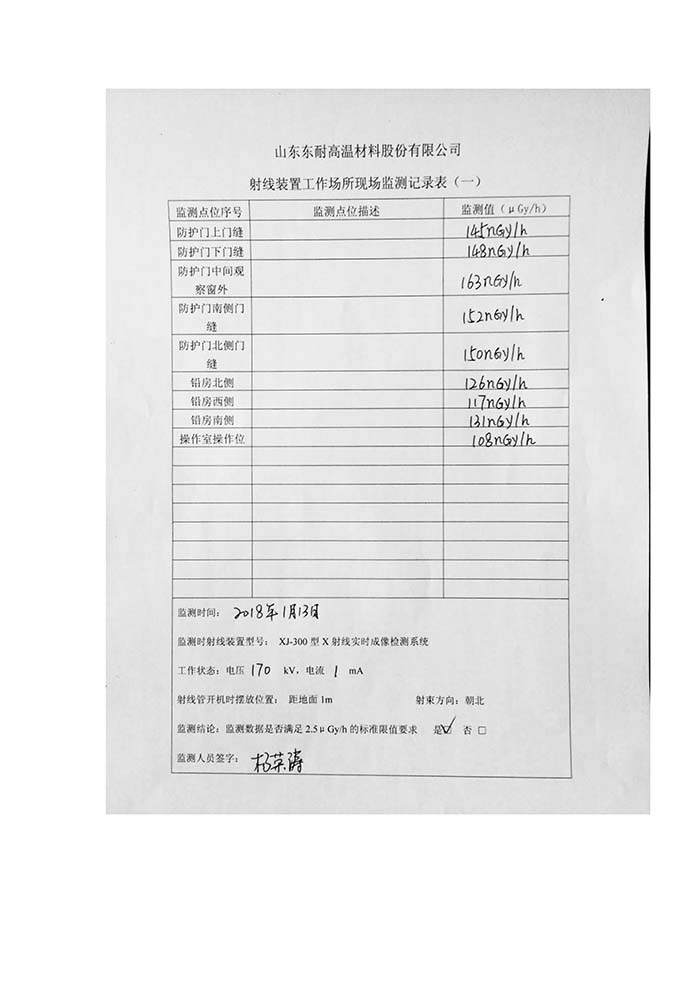 山东东耐高温材料股份有限公司
射线装置工作场所现场监测记录表（一）
监测点位序号 监测点位描述 监测值（μGy/h）
防护门上门缝 145nGy/h
防护门下门缝 148nGy/h
防护门中间观
察窗外 163nGy/h
防护门南侧门
缝 152nGy/h
防护门北侧门
缝 150nGy/h
铅房北侧 126nGy/h
铅房西侧 117nGy/h
铅房南侧 131nGy/h
操作室操作位 108nGy/h
监测时间： 2018年1月13日
监测时射线装置型号： XJ-300 型 X 射线实时成像检测系统
工作状态：电压 170 kV，电流 1 mA
射线管开机时摆放位置： 距地面 1m 射束方向：朝北
监测结论：监测数据是否满足 2.5μGy/h 的标准限值要求 是☑ 否 □
监测人员签字： 杨荣涛